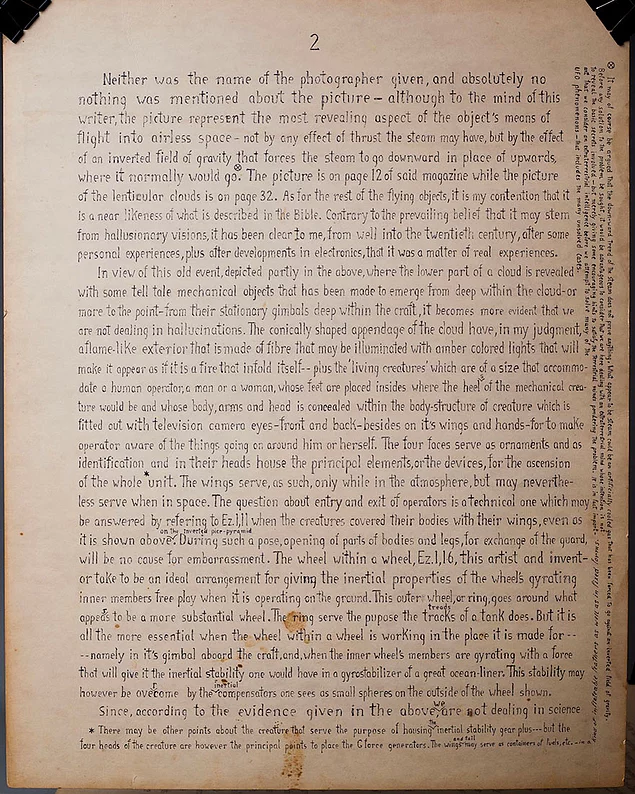 2
Neither was the name of the photographer given, and absolutely no
nothing was mentioned about the picture – although to the mind of this
writer, the picture represent the most revealing aspect of the object's means of
flight into airless space - not by any effect of thrust the steam may have, but by the effect
of an inverted field of gravity that forces the steam to go downward in place of upwards,
where it normally would go.⊗ The picture is on page 12 of said magazine while the picture
of the lenticular clouds is on page 32. As for the rest of the flying objects, it is my contention that it
is a near likeness of what is described in the Bible. Contrary to the prevailing belief that it may stem
from hallusionary visions, it has been clear to me, from well into the twentieth century, after some
personal experiences, plus after developments in electronics, that it was a matter of real experiences.
In view of this old event, depicted partly in the above, where the lower part of a cloud is revealed
with some tell tale mechanical objects that has been made to emerge from deep within the cloud-or
more to the point-from their stationary gimbals deep within the craft, it becomes more evident that we
are not dealing in hallucinations. The conically shaped appendage of the cloud have, in my judgment,
a flame-like exterior that is made of fibre that may be illuminated with amber colored lights that will
make it appear as if it is a fire that infold itself -- plus the 'living creatures' which are of a size that accommo-
date a human operator, a man or a woman, whose feet are placed insides where the heels of the mechanical crea-
ture would be and whose body, arms and head is concealed within the body-structure of creature which is
fitted out with television camera eyes-front and back-besides on it's wings and hands-for to make
operator aware of the things going on around him or herself. The four faces serve as ornaments and as
identification and in their heads house the principal elements, or the devices, for the ascension
of the whole *unit. The wings serve, as such, only while in the atmosphere, but may neverthe-
less serve when in space. The question about entry and exit of operators is a technical one which may
be answered by refering to Ez.1,11 when the creatures covered their bodies with their wings, even as
it is shown above on the inverted pice-pyramid. During such a pose, opening of parts of bodies and legs, for exchange of the guard,
will be no cause for embarrassment. The wheel within a wheel, Ez.1,16, this artist and invent-
or take to be an ideal arrangement for giving the inertial properties of the wheel's gyrating
inner members free play when it is operating on the ground. This outer wheel, or ring, goes around what
appears to be a more substantial wheel. The ring serve the pupose the treads tracks of a tank does. But it is
all the more essential when the wheel within a wheel is working in the place it is made for --
--namely in it's gimbal aboard the craft, and, when the inner wheel's members are gyrating with a force
that will give it the inertial stability one would have in a gyrostabilizer of a great ocean-liner. This stability may
however be overcome by the inertial compensators one sees as small spheres on the outside of the wheel shown.
Since, according to the evidence given in the above, we are not dealing in science
* There may be other points about the creature that serve the purpose of housing the inertial stability gear plus---but the
four heads of the creature are however the principal points to place the G force generators. The wings and tail may serve as containers of fuels, etc.
⊗ It may of course be argued that the downward trend of the steam does not prove anything. What appear to be steam could be an artificially cooled gas that has been forced to go against an inverted field of gravity.